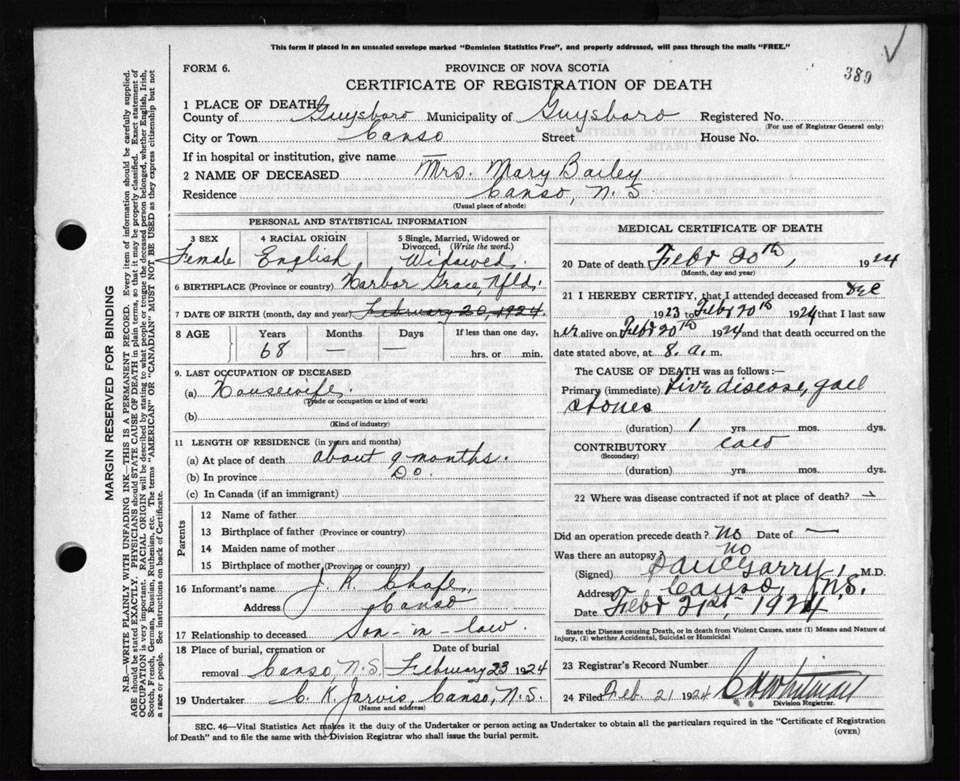 This form if placed in an unsealed envelope marked "Dominion Statistics Free", and properly addressed, will pass through the mails "FREE."
FORM 6.
PROVINCE OF NOVA SCOTIA
389
CERTIFICATE OF REGISTRATION OF DEATH
1 PLACE OF DEATH
County of Guysboro Municipality of Guysboro Registered No.
(For use of Registrar General only)
City or Town Canso Street House No.
If in hospital or institution, give name —
2 NAME OF DECEASED Mrs. Mary Bailey
Residence Canso, N.S
(Usual place of abode)
PERSONAL AND STATISTICAL INFORMATION
3 SEX
Female
4 RACIAL ORIGIN
English
5 Single, Married, Widowed or Divorced. (Write the word.)
Widowed.
6 BIRTHPLACE (Province or country) Harbor Grace, Nfld.
7 DATE OF BIRTH (month, day and year) February 20, 1924.
8 AGE Years Months Days If less than one day,
68 — — hrs. or min.
9. LAST OCCUPATION OF DECEASED
(a) Housewife.
(Trade or occupation or kind of work)
(b)
(Kind of industry)
11 LENGTH OF RESIDENCE (in years and months)
(a) At place of death about 9 months.
(b) In province Do.
(c) In Canada (if an immigrant)
Parents
12 Name of father
13 Birthplace of father (Province or country)
14 Maiden name of mother
15 Birthplace of mother (Province or country)
16 Informant's name J. R. Chafe,
Address Canso
17 Relationship to deceased Son-in-law.
18 Place of burial, cremation or Date of burial
removal Canso N.S. February 23 1924
19 Undertaker C. K. Jarvis, Canso, N.S.
(Name and address)
MEDICAL CERTIFICATE OF DEATH
20 Date of death Febr 20th, 1924
(Month, day and year)
21 I HEREBY CERTIFY, that I attended deceased from Dec
1923 to Febr 20th 1924 that I last saw
her alive on Febr 20th 1924 and that death occurred on the
date stated above, at 8. a. m.
The CAUSE OF DEATH was as follows:—
Primary (immediate) disease, gall
stones
(duration) 1 yrs. mos. dys.
CONTRIBUTORY
(Secondary)
(duration) yrs. mos. dys.
22 Where was disease contracted if not at place of death? —
Did an operation precede death? No Date of —
Was there an autopsy? no
(Signed) M.D.
Address Canso, N.S.
Date Febr 21st 1924
State the Disease causing Death, or in death from Violent Causes, state (1) Means and Nature of Injury, (2) whether Accidental, Suicidal or Homicidal
23 Registrar's Record Number
24 Filed Feb 21 1924 Whitman
Division Registrar.
SEC. 46—Vital Statistics Act makes it the duty of the Undertaker or person acting as Undertaker to obtain all the particulars required in the "Certificate of Registration
of Death" and to file the same with the Division Registrar who shall issue the burial permit.
(OVER)
MARGIN RESERVED FOR BINDING
N.B.—WRITE PLAINLY WITH UNFADING INK—THIS IS A PERMANENT RECORD. Every item of information should be carefully supplied.
AGE should be stated EXACTLY. PHYSICIANS should STATE CAUSE OF DEATH in plain terms, so that it may be properly classified. Exact statement of
OCCUPATION is very important. RACIAL ORIGIN will be described by stating to what people or tongue the deceased person belonged, whether English, Irish,
Scotch, French, German, Russian, Ruthenian, etc. The terms "AMERICAN" OR "CANADIAN" MUST NOT BE USED as they express citizenship but not
a race or people. See instructions on back of Certificate.